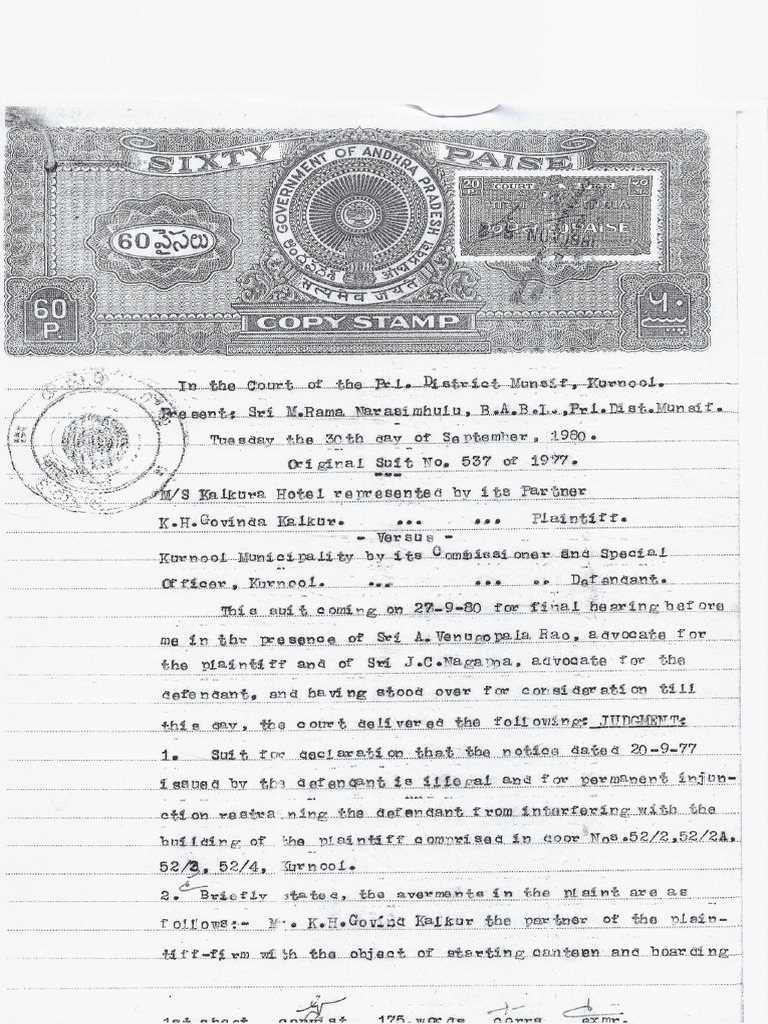 SIXTY PAISE
GOVERNMENT OF ANDHRA PRADESH
ఆంధ్రప్రదేశ్ आंध्र प्रदेश
सत्यमेव जयते
60 పైసలు
20 COURT FEE
INDIA
PAISE
NOV 1981
60
P.
COPY STAMP
In the Court of the Prl. District Munsif, Kurnool.
Present: Sri M.Rama Narasimhulu, B.A.B.L.,Prl.Dist.Munsif.
Tuesday the 30th day of September, 1980.
Original Suit No. 537 of 1977.
M/S Kalkura Hotel represented by its Partner
K.H.Govinda Kalkur. ... ... Plaintiff.
- Versus -
Kurnool Municipality by its Commissioner and Special
Officer, Kurnool. ... ... .. Defendant.
This suit coming on 27-9-80 for final hearing before
me in thr presence of Sri A.Venugopala Rao, advocate for
the plaintiff and of Sri J.C.Nagappa, advocate for the
defendant, and having stood over for consideration till
this day, the court delivered the following: JUDGMENT:
1. Suit for declaration that the notice dated 20-9-77
issued by the defendant is illegal and for permanent injun-
ction restraining the defendant from interfering with the
building of the plaintiff comprised in door Nos.52/2,52/2A,
52/3, 52/4, Kurnool.
2. Briefly stated, the averments in the plaint are as
follows:- Mr. K.H.Govind Kalkur the partner of the plain-
tiff-firm with the object of starting canteen and boarding
1st sheet copyist 175 words corrs exmr.